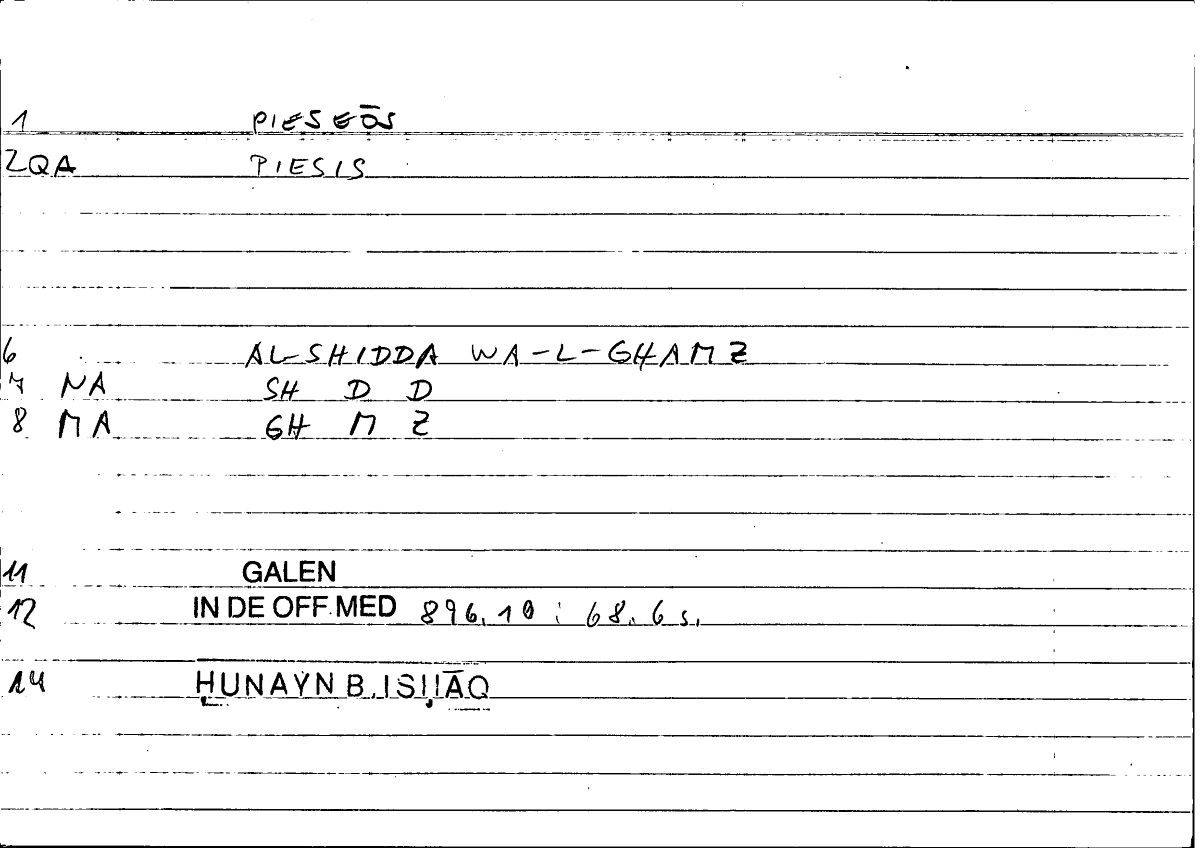 1 PIESEŌS
2QA PIESIS
6 AL-SHIDDA WA-L-GHAMZ
7 NA SH D D
8 MA GH M Z
11 GALEN
12 IN DE OFF.MED 896.10 : 68.6 s.
14 ḤUNAYN B. ISḤĀQ